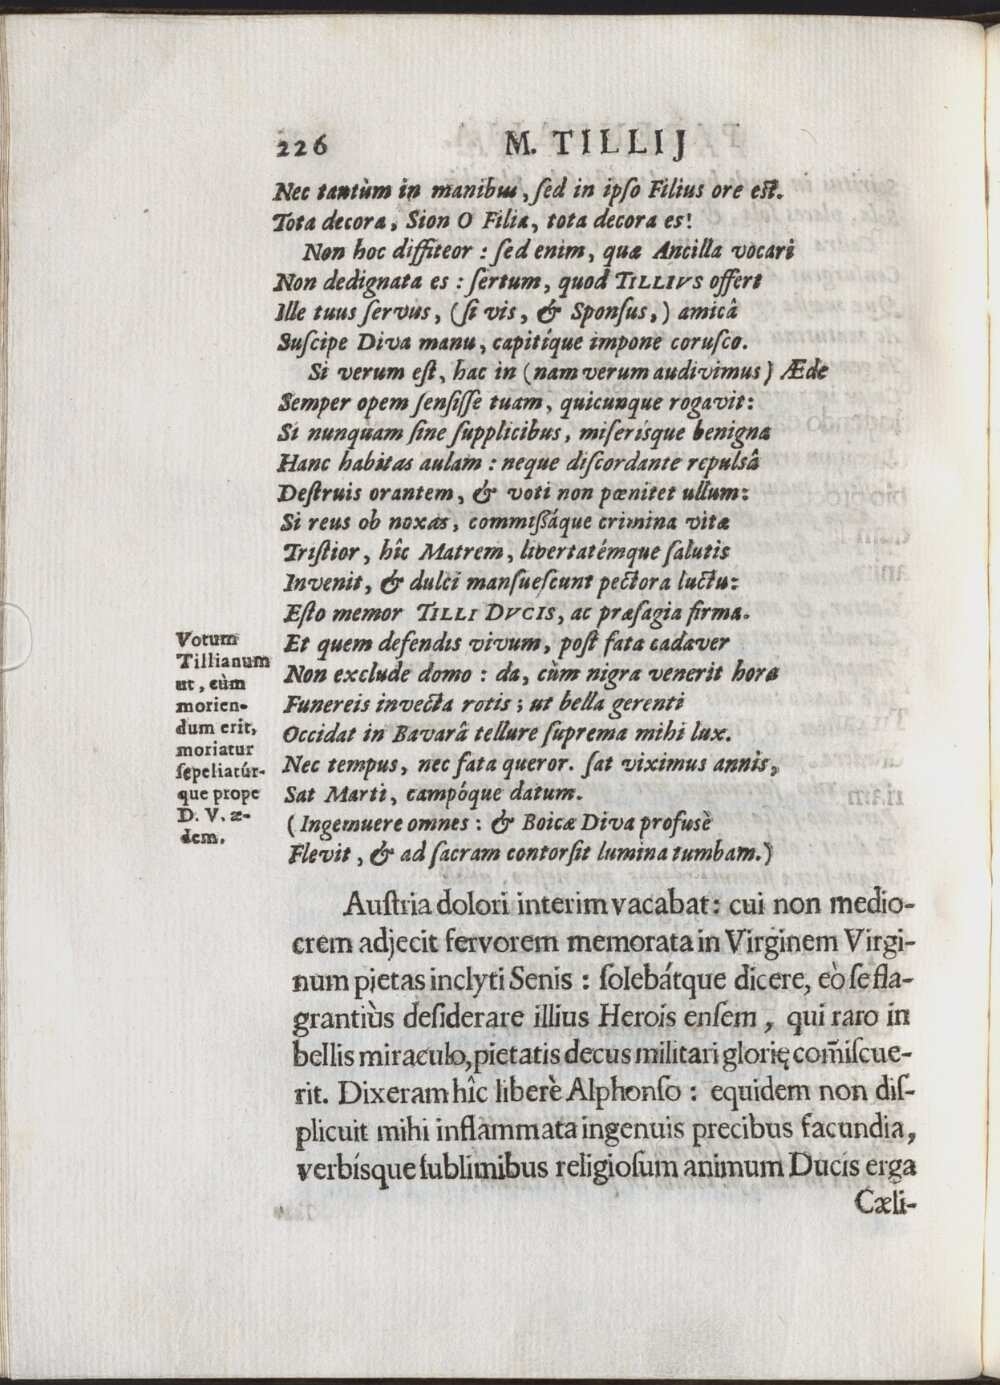 226 M. TILLIJ
Nec tantùm in manibus, ſed in ipſo Filius ore eſt.
Tota decora, Sion O Filia, tota decora es!
Non hoc diffiteor : ſed enim, quæ Ancilla vocari
Non dedignata es : ſertum, quod TILLIVS offert
Ille tuus ſervus, (ſi vis, & Sponſus,) amicâ
Suſcipe Diva manu, capitíque impone coruſco.
Si verum eſt, hac in (nam verum audivimus) Æde
Semper opem ſenſiſſe tuam, quicunque rogavit:
Si nunquam ſine ſupplicibus, miſerísque benigna
Hanc habitas aulam : neque diſcordante repulſâ
Deſtruis orantem, & voti non pœnitet ullum:
Si reus ob noxas, commiſſáque crimina vitæ
Triſtior, hîc Matrem, libertatémque ſalutis
Invenit, & dulci manſueſcunt pectora luctu:
Eſto memor TILLI DVCIS, ac præſagia firma.
Et quem defendis vivum, poſt fata cadaver
Non exclude domo : da, cùm nigra venerit hora
Funereis invecta rotis ; ut bella gerenti
Occidat in Bavarâ tellure ſuprema mihi lux.
Nec tempus, nec fata queror. ſat viximus annis,
Sat Marti, campóque datum.
(Ingemuere omnes : & Boicæ Diva profusè
Flevit, & ad ſacram contorſit lumina tumbam.)
Votum
Tillianum
ut, cùm
morien-
dum erit,
moriatur
ſepeliatúr-
que prope
D. V. æ-
dem.
Auſtria dolori interim vacabat : cui non medio-
crem adjecit fervorem memorata in Virginem Virgi-
num pietas inclyti Senis : ſolebátque dicere, eò ſe fla-
grantiùs deſiderare illius Herois enſem, qui raro in
bellis miraculo, pietatis decus militari glorię com̃iſcue-
rit. Dixeram hîc liberè Alphonſo : equidem non diſ-
plicuit mihi inflammata ingenuis precibus facundia,
verbísque ſublimibus religioſum animum Ducis erga
Cæli-